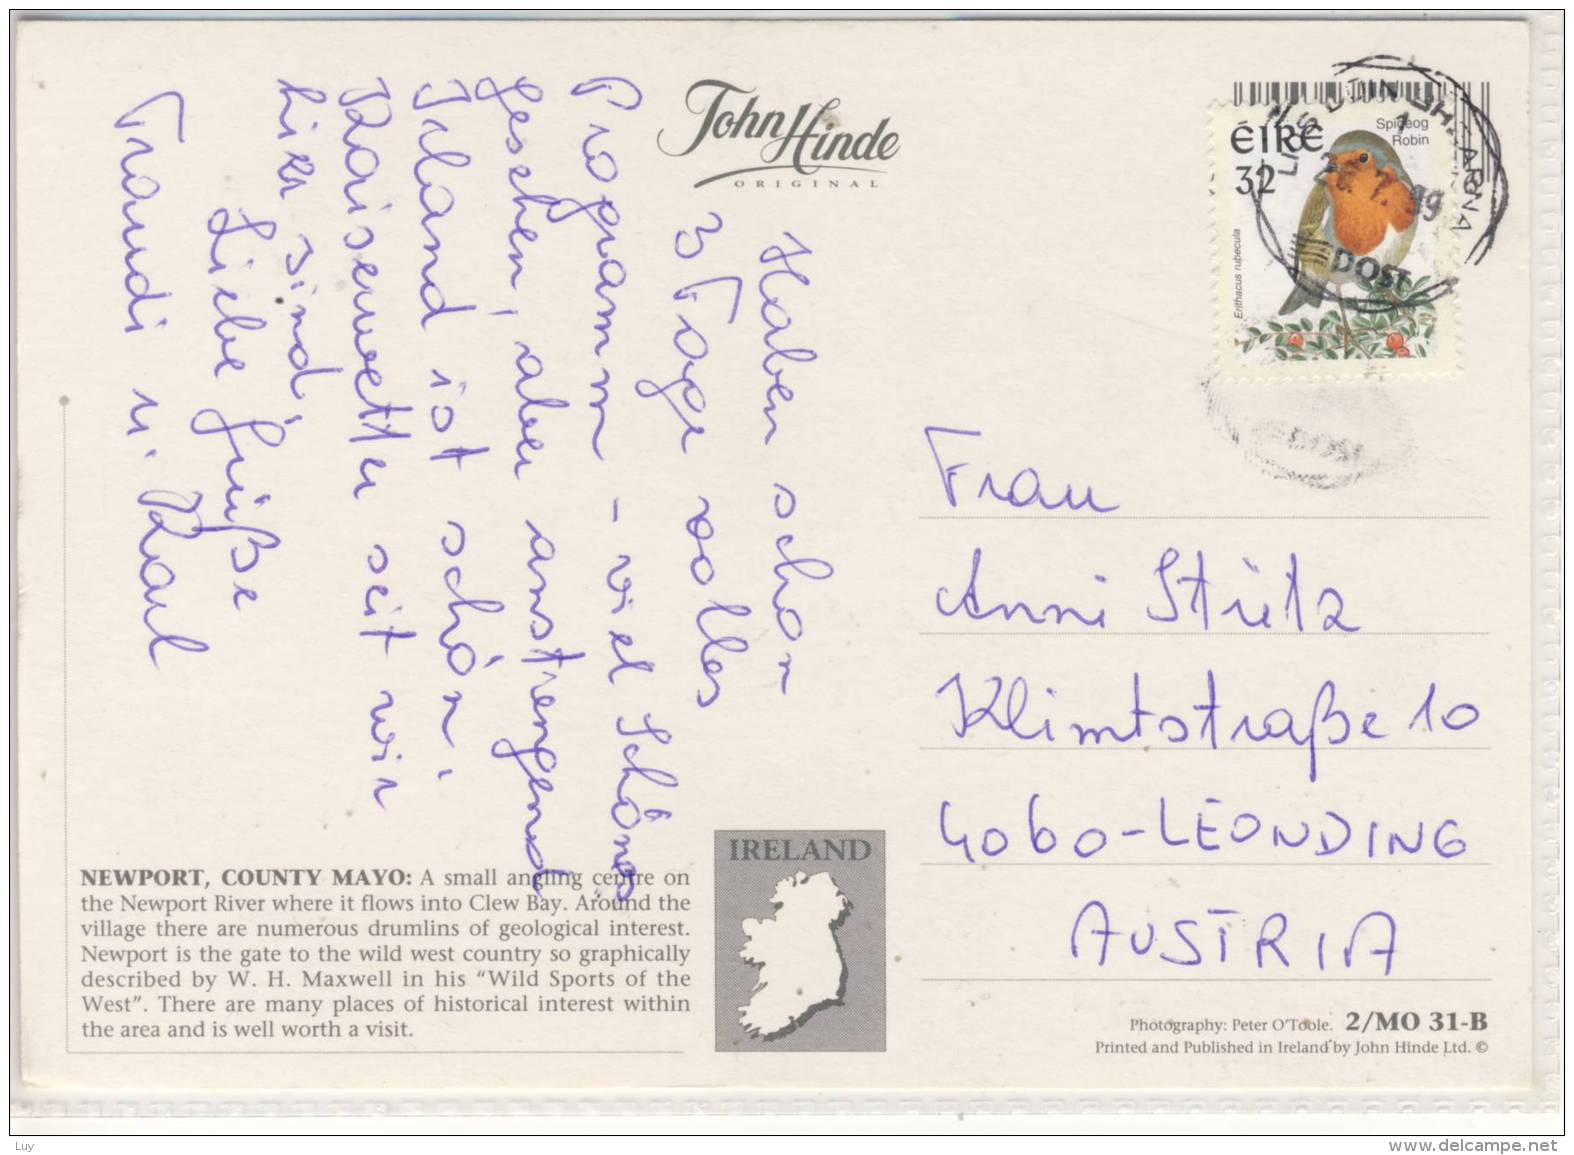 John Hinde
ORIGINAL
ÉIRE
32
Spideog
Robin
Erithacus rubecula
POST
Haben schon
3 Tage volles
Programm - viel Schönes
gesehen, aber anstrengend
Irland ist schön.
Kaiserwetter seit wir
hier sind.
Liebe Grüße
Traudi u. Karl
Frau
Anni Stütz
Klimtstraße 10
4060-LEONDING
AUSTRIA
IRELAND
NEWPORT, COUNTY MAYO: A small angling centre on
the Newport River where it flows into Clew Bay. Around the
village there are numerous drumlins of geological interest.
Newport is the gate to the wild west country so graphically
described by W. H. Maxwell in his “Wild Sports of the
West”. There are many places of historical interest within
the area and is well worth a visit.
Photography: Peter O'Toole. 2/MO 31-B
Printed and Published in Ireland by John Hinde Ltd. ©
Luy
www.delcampe.net